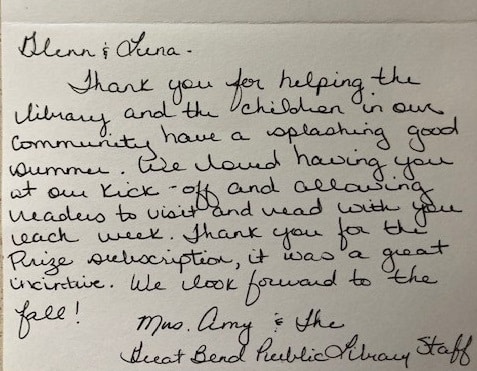 Glenn & Luna -
Thank you for helping the
library and the children in our
community have a splashing good
summer. We loved having you
at our Kick-off and allowing
readers to visit and read with you
each week. Thank you for the
Prize subscription, it was a great
incentive. We look forward to the
fall!
Mrs. Amy & the
Great Bend Public Library Staff